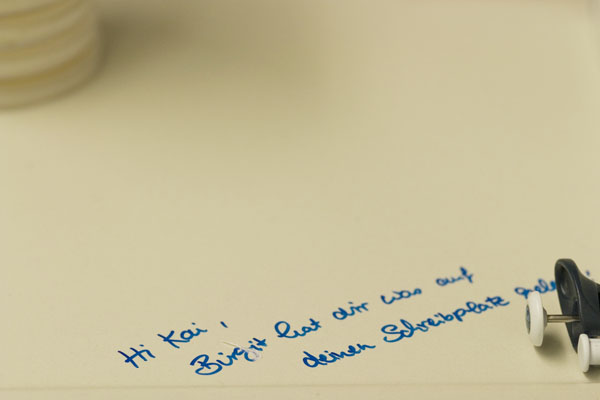 Hi Kai !
Birgit hat dir was auf
deinen Schreibplatz